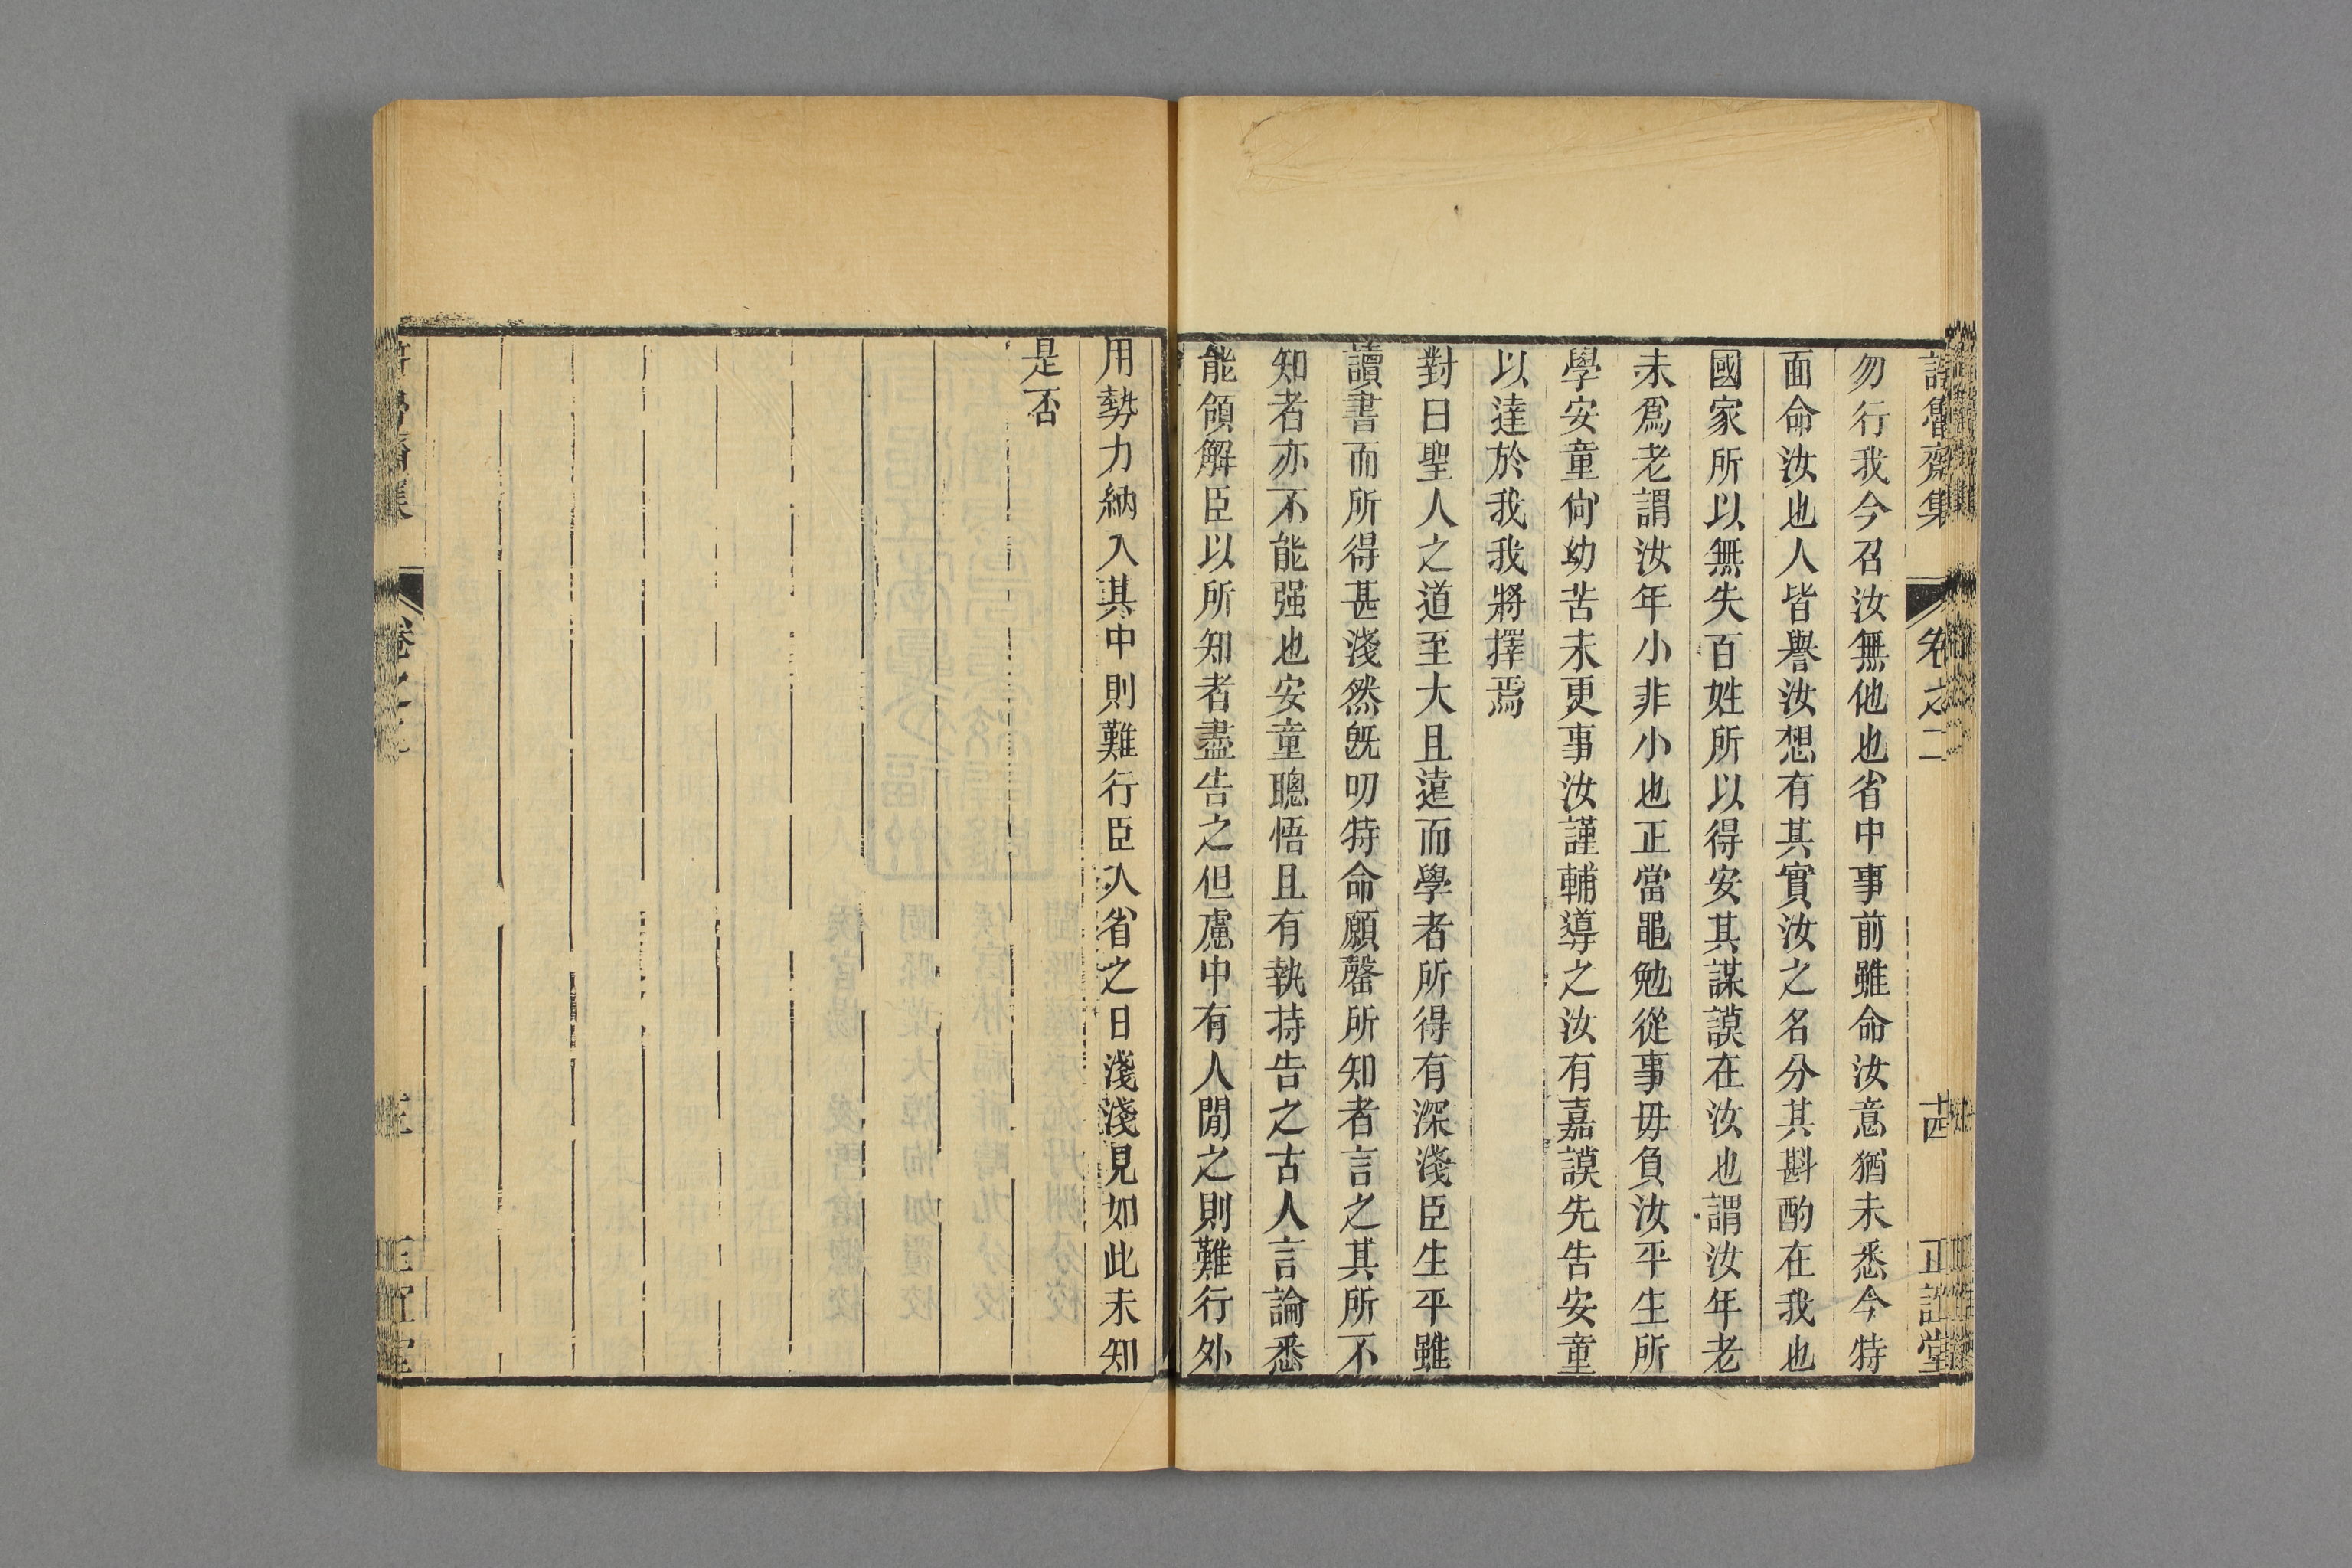 許魯齋集 卷之二 十四 正誼堂
勿行我今召汝無他也省中事前雖命汝意猶未悉今特
面命汝也人皆譽汝想有其實汝之名分其斟酌在我也
國家所以無失百姓所以得安其謀謨在汝也謂汝年老
未爲老謂汝年小非小也正當黽勉從事毋負汝平生所
學安童尙幼苦未更事汝謹輔導之汝有嘉謨先告安童
以達於我我將擇焉
對曰聖人之道至大且遠而學者所得有深淺臣生平雖
讀書而所得甚淺然旣叨特命願罄所知者言之其所不
知者亦不能强也安童聰悟且有執持告之古人言論悉
能領解臣以所知者盡告之但慮中有人閒之則難行外
用勢力納入其中則難行臣入省之日淺淺見如此未知
是否